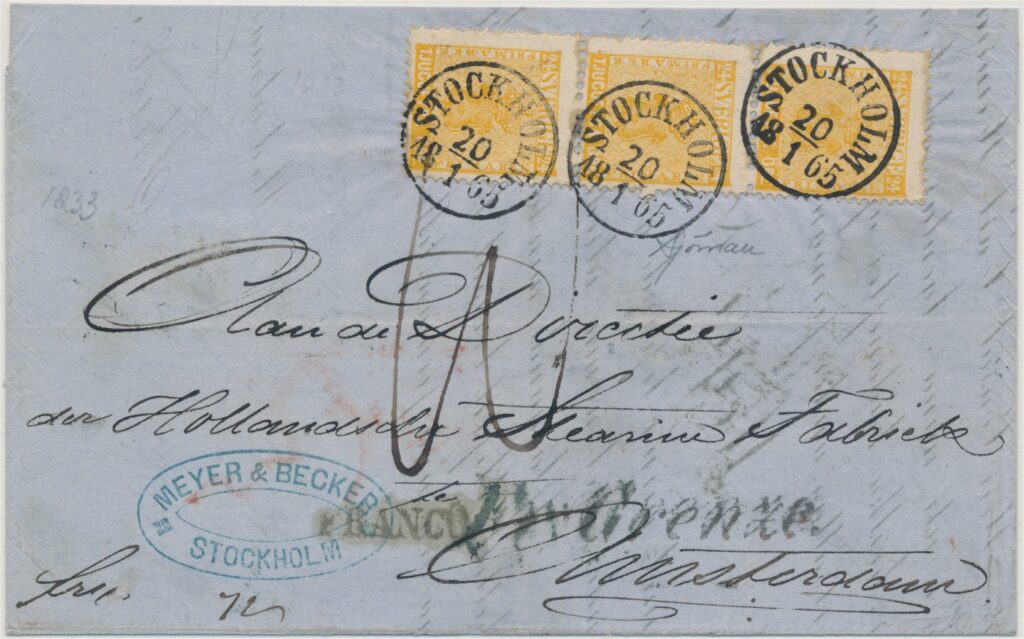 24 SVERIGE 24
FRIMÄRKE
STOCKHOLM
20
1
18 65
STOCKHOLM
20
1
18 65
STOCKHOLM
20
1
18 65
1833
Sjöman
Aan de Directie
der Hollandsche Stearine Fabriek
te
MEYER & BECKER
STOCKHOLM
FRANCO
Grenze.
Amsterdam
72